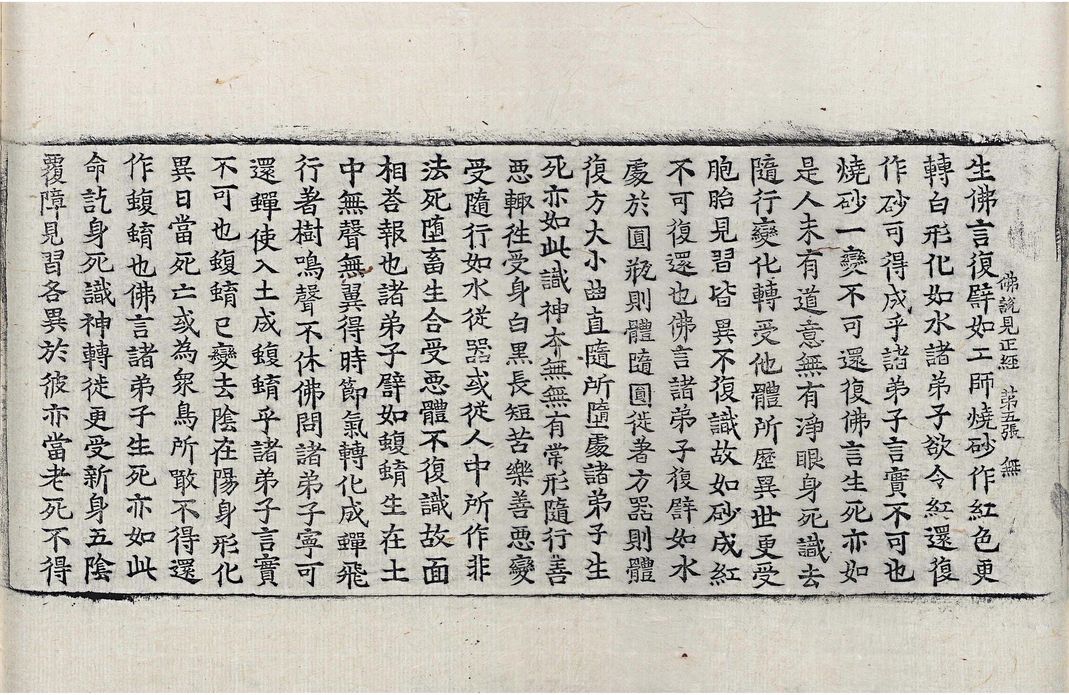 佛說見正經 第五張 無
生佛言復譬如工師燒砂作紅色更
轉白形化如水諸弟子欲令紅還復
作砂可得成乎諸弟子言實不可也
燒砂一變不可還復佛言生死亦如
是人未有道意無有淨眼身死識去
隨行變化轉受他體所歷異世更受
胞胎見習皆異不復識故如砂成紅
不可復還也佛言諸弟子復譬如水
處於圓瓶則體隨圓徙著方器則體
復方大小曲直隨所墮處諸弟子生
死亦如此識神本無無有常形隨行善
惡輙往受身白黑長短苦樂善惡變
受隨行如水從器或從人中所作非
法死墮畜生合受惡體不復識故面
相荅報也諸弟子譬如蝮蜟生在土
中無聲無翼得時節氣轉化成蟬飛
行著樹鳴聲不休佛問諸弟子寧可
還蟬使入土成蝮蜟乎諸弟子言實
不可也蝮蜟已變去陰在陽身形化
異日當死亡或為衆鳥所噉不得還
作蝮蜟也佛言諸弟子生死亦如此
命訖身死識神轉徙更受新身五陰
覆障見習各異於彼亦當老死不得